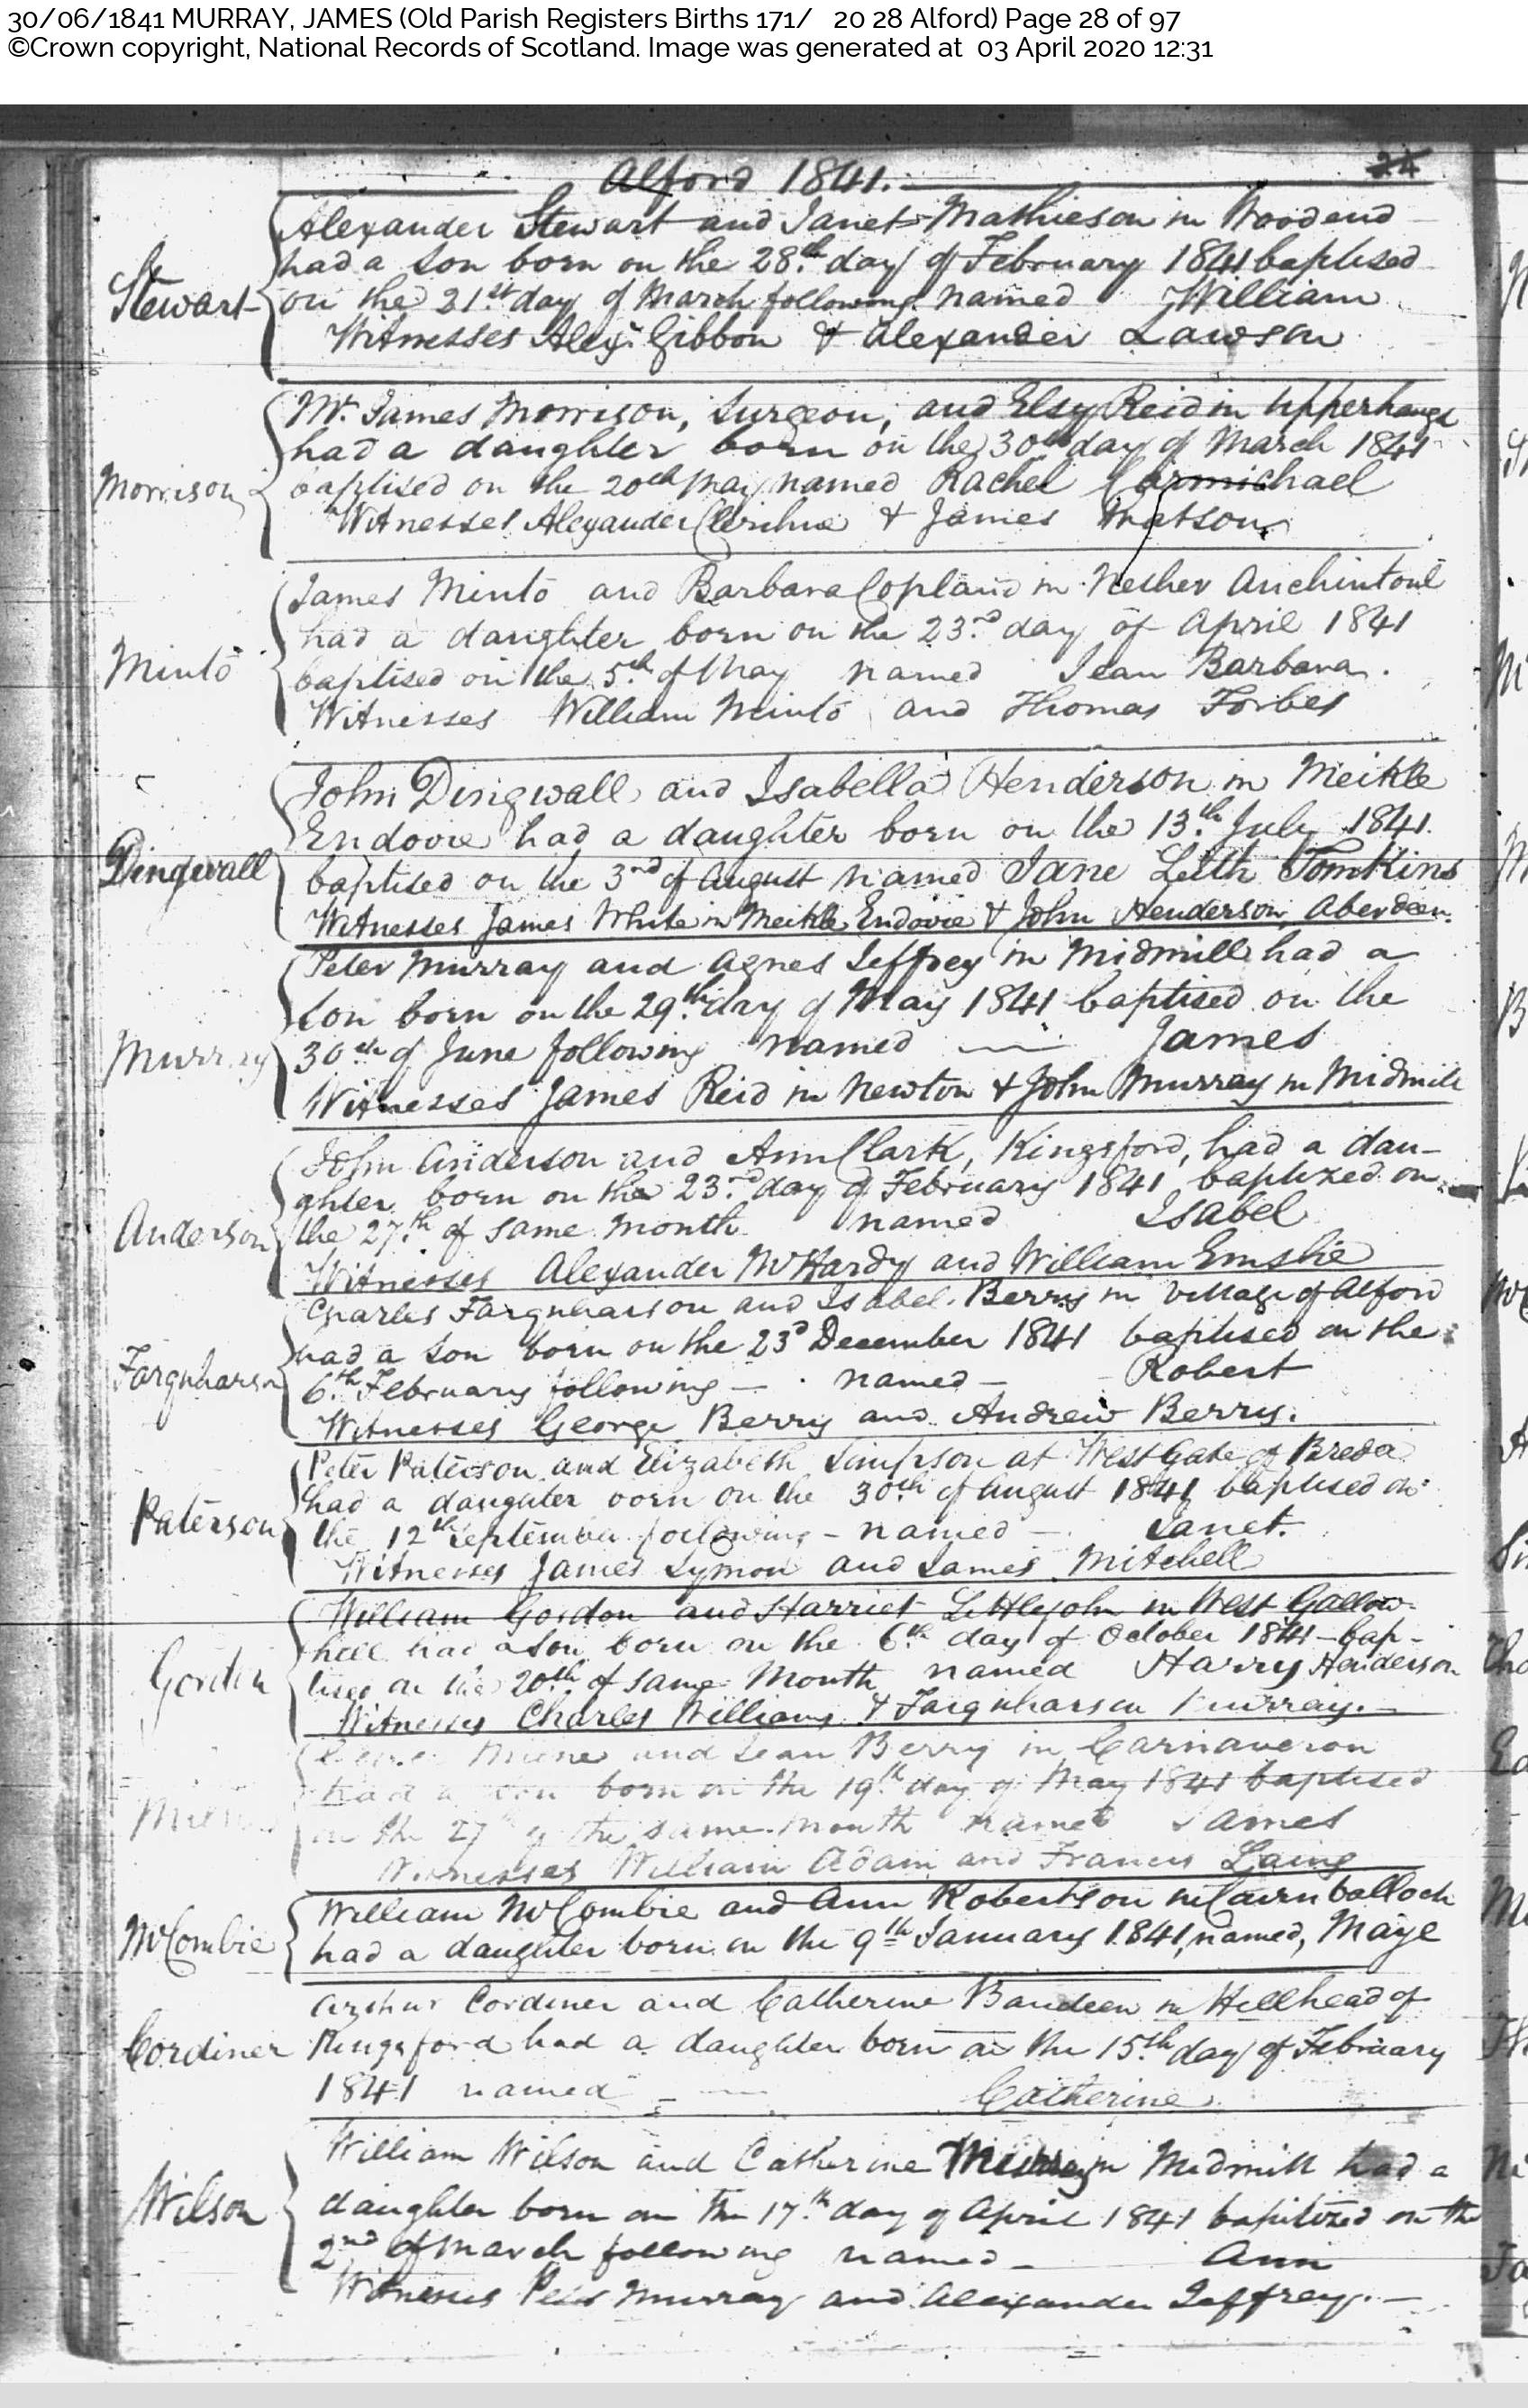 30/06/1841 MURRAY, JAMES (Old Parish Registers Births 171/ 20 28 Alford) Page 28 of 97
©Crown copyright, National Records of Scotland. Image was generated at 03 April 2020 12:31
Alford 1841.
24
Alexander Stewart and Janet Mathieson in Woodend
had a son born on the 28th day of February 1841 baptised
Stewart
on the 21st day of March following named William
Witnesses Alexr. Gibbon & Alexander Lawson
Mr. James Morrison, Surgeon, and Elsy Reid in Upperhaugh
had a daughter born on the 30th day of March 1841
Morrison
baptised on the 20th May named Rachel Carmichael
Witnesses Alexander & James Watson
James Minto and Barbara Copland in Nether Auchintoul
had a daughter born on the 23rd day of April 1841
Minto
baptised on the 5th of May named Jean Barbara.
Witnesses William Minto and Thomas Forbes
John Dingwall and Isabella Henderson in Meikle
Endovie had a daughter born on the 13th July 1841.
Dingwall
baptised on the 3rd of August named Jane Leith Tomkins
Witnesses James White in Meikle Endovie & John Henderson, Aberdeen.
Peter Murray and Agnes Jeffrey in Midmill had a
son born on the 29th day of May 1841 baptised on the
Murray
30th of June following named — James
Witnesses James Reid in Newton & John Murray in Midmill
John Anderson and Ann Clark, Kingsford, had a dau-
ghter born on the 23rd day of February 1841 baptized on
Anderson
the 27th of same month named Isabel
Witnesses Alexander McHardy and William Emslie
Charles Farquharson and Isabel Berry in Village of Alford
had a son born on the 23d December 1841 baptised on the
Farquharson
6th February following — named — Robert
Witnesses George Berry and Andrew Berry.
Peter Paterson and Elizabeth Simpson at West Gate of Breda
had a daughter born on the 30th of August 1841 baptised on
Paterson
the 12th September following - named - Janet.
Witnesses James Symon and James Mitchell
William Gordon and Harriet Littlejohn in West Gallow-
hill had a son born on the 6th day of October 1841 - bap-
Gordon
tised on the 20th of same Month named Harry Henderson
Witnesses Charles Williams & Farquharson Murray. —
Milne and Jean Berry in Carnaveron
had a son born on the 19th day of May 1841 baptised
Milne
on the 27th of the same month named James
Witnesses William Adam and Francis Laing
William McCombie and Ann Robertson in Cairnballoch
McCombie
had a daughter born on the 9th January 1841, named, Maye
Arthur Cordiner and Catherine Baudeen in Hillhead of
Cordiner
Kingsford had a daughter born on the 15th day of February
1841 named — Catherine
William Wilson and Catherine Murray in Midmill had a
Wilson
daughter born on the 17th day of April 1841 baptized on the
2nd of March following named — Ann
Witnesses Peter Murray and Alexander Jeffrey. —